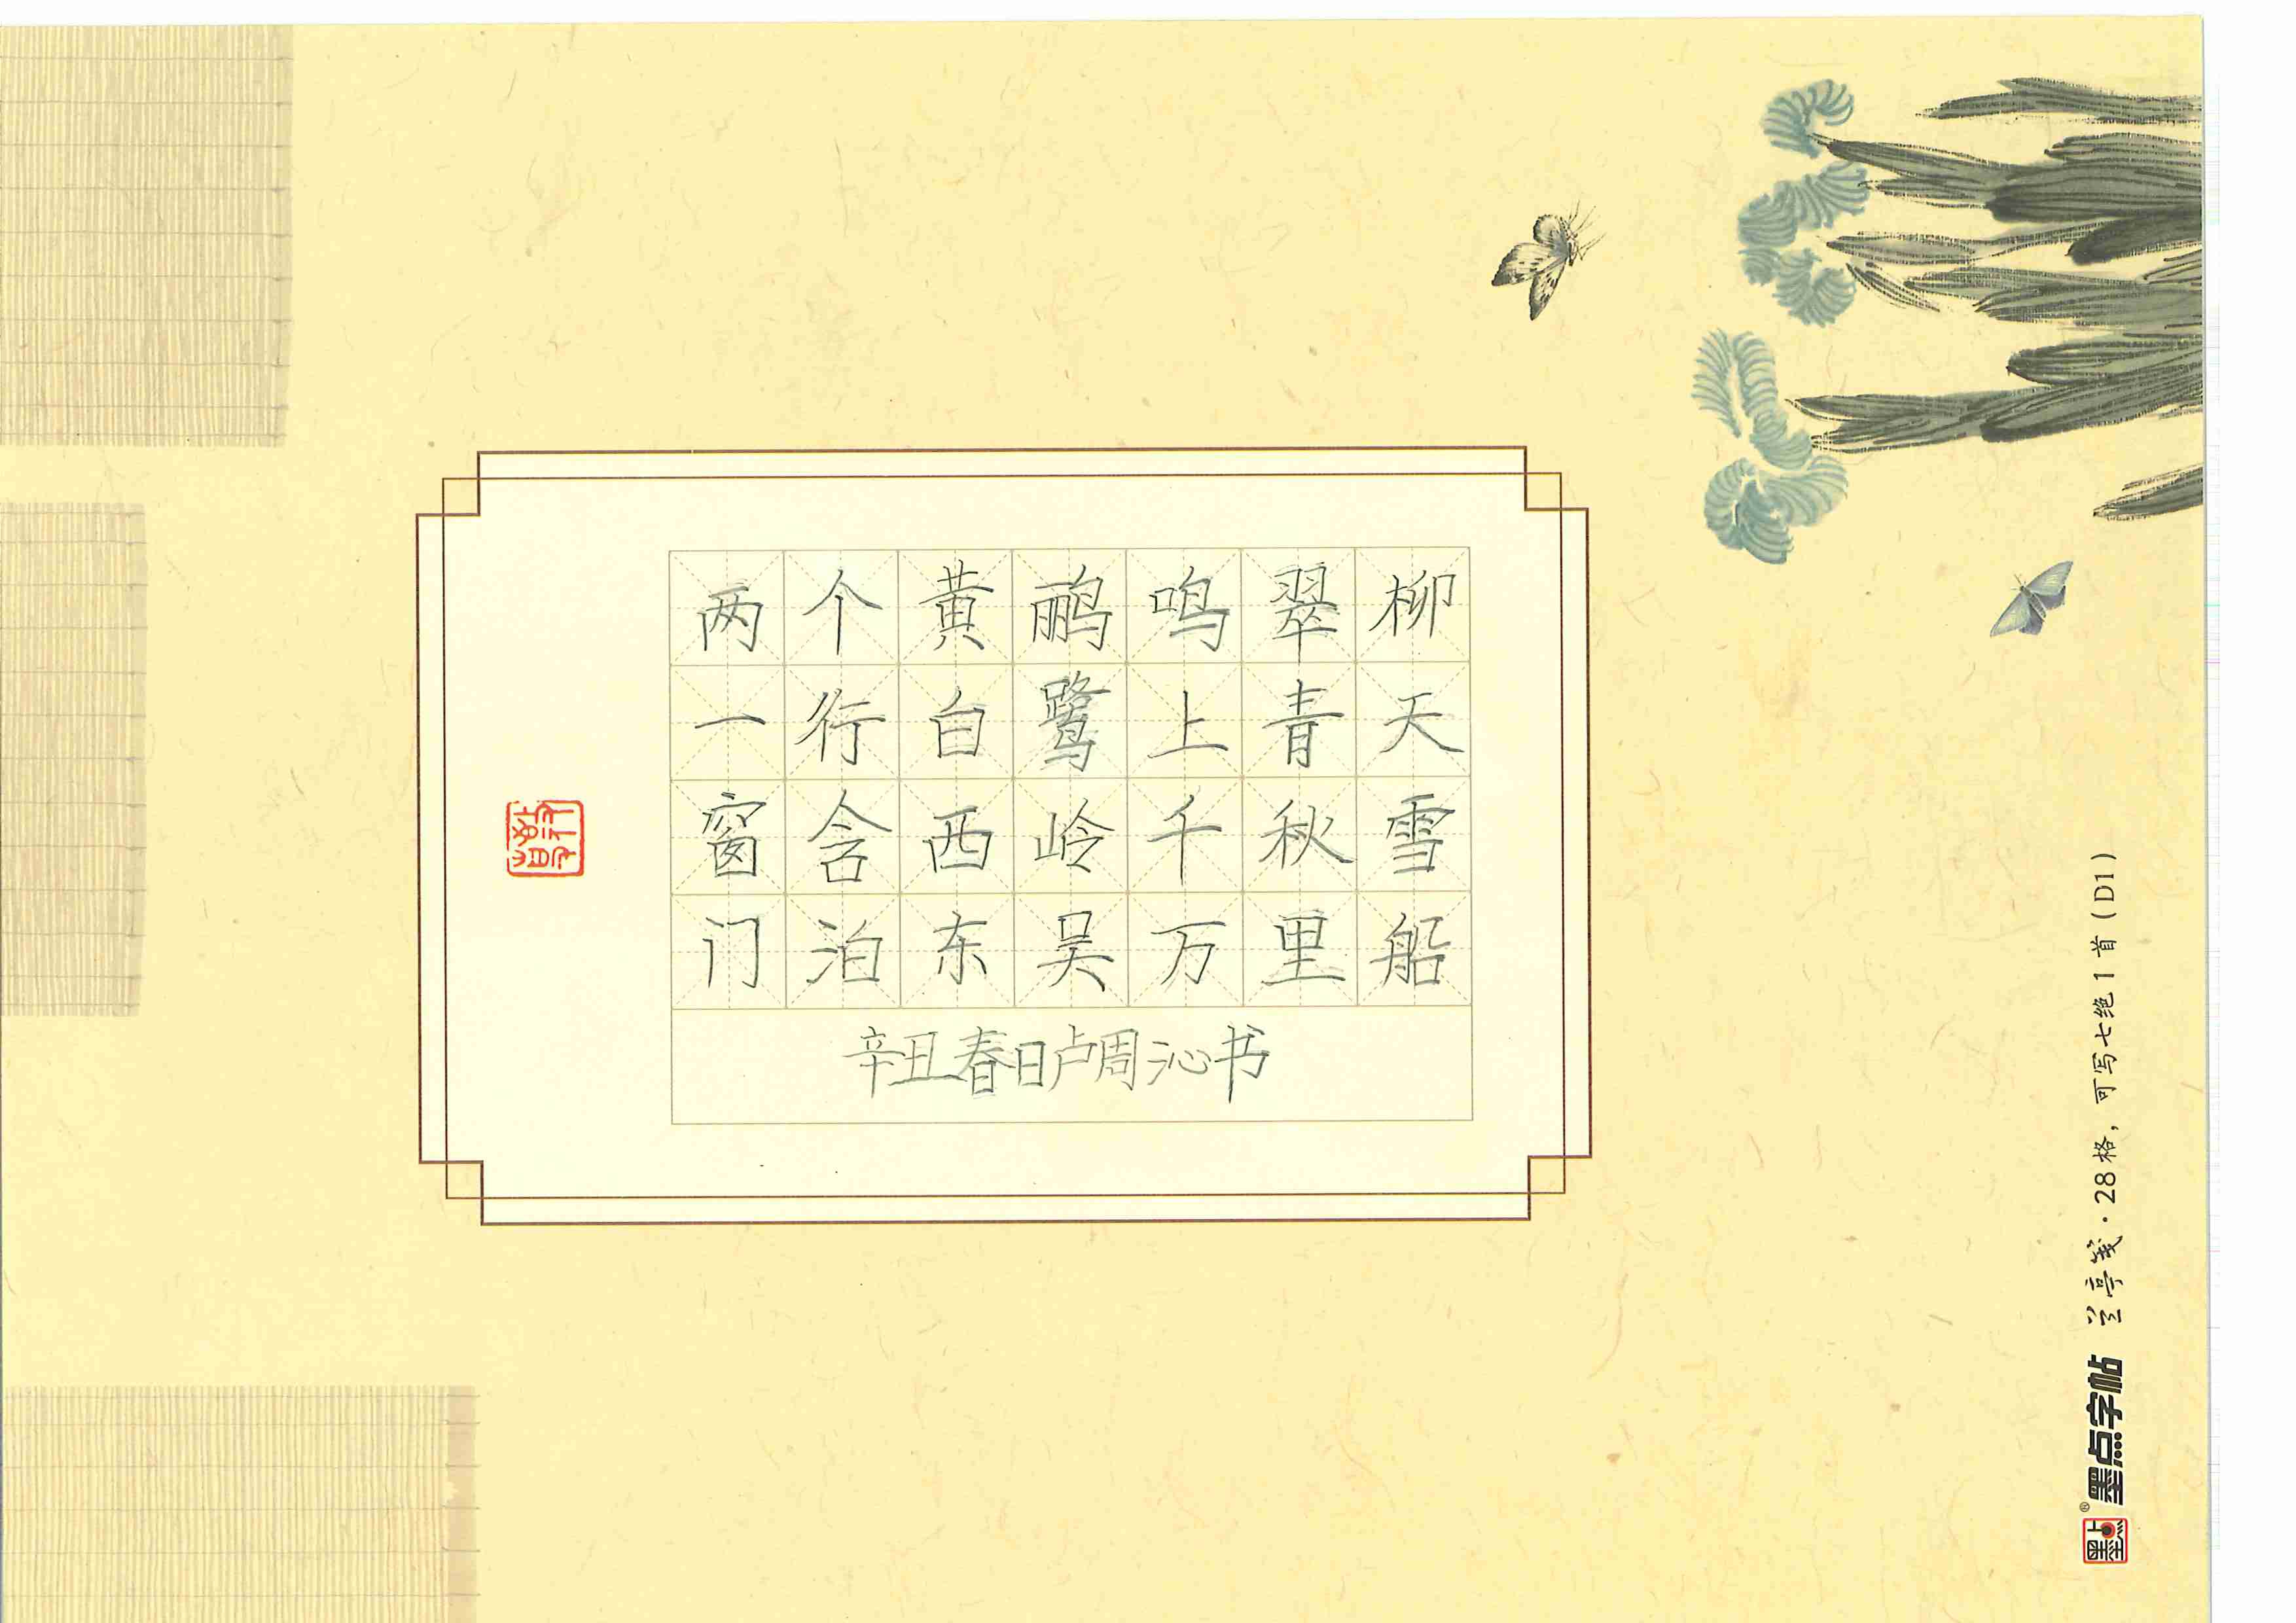 两个黄鹂鸣翠柳
一行白鹭上青天
窗含西岭千秋雪
门泊东吴万里船
辛丑春日卢周沁书
墨点字帖 兰亭笺·28格，可写七绝1首（D1）